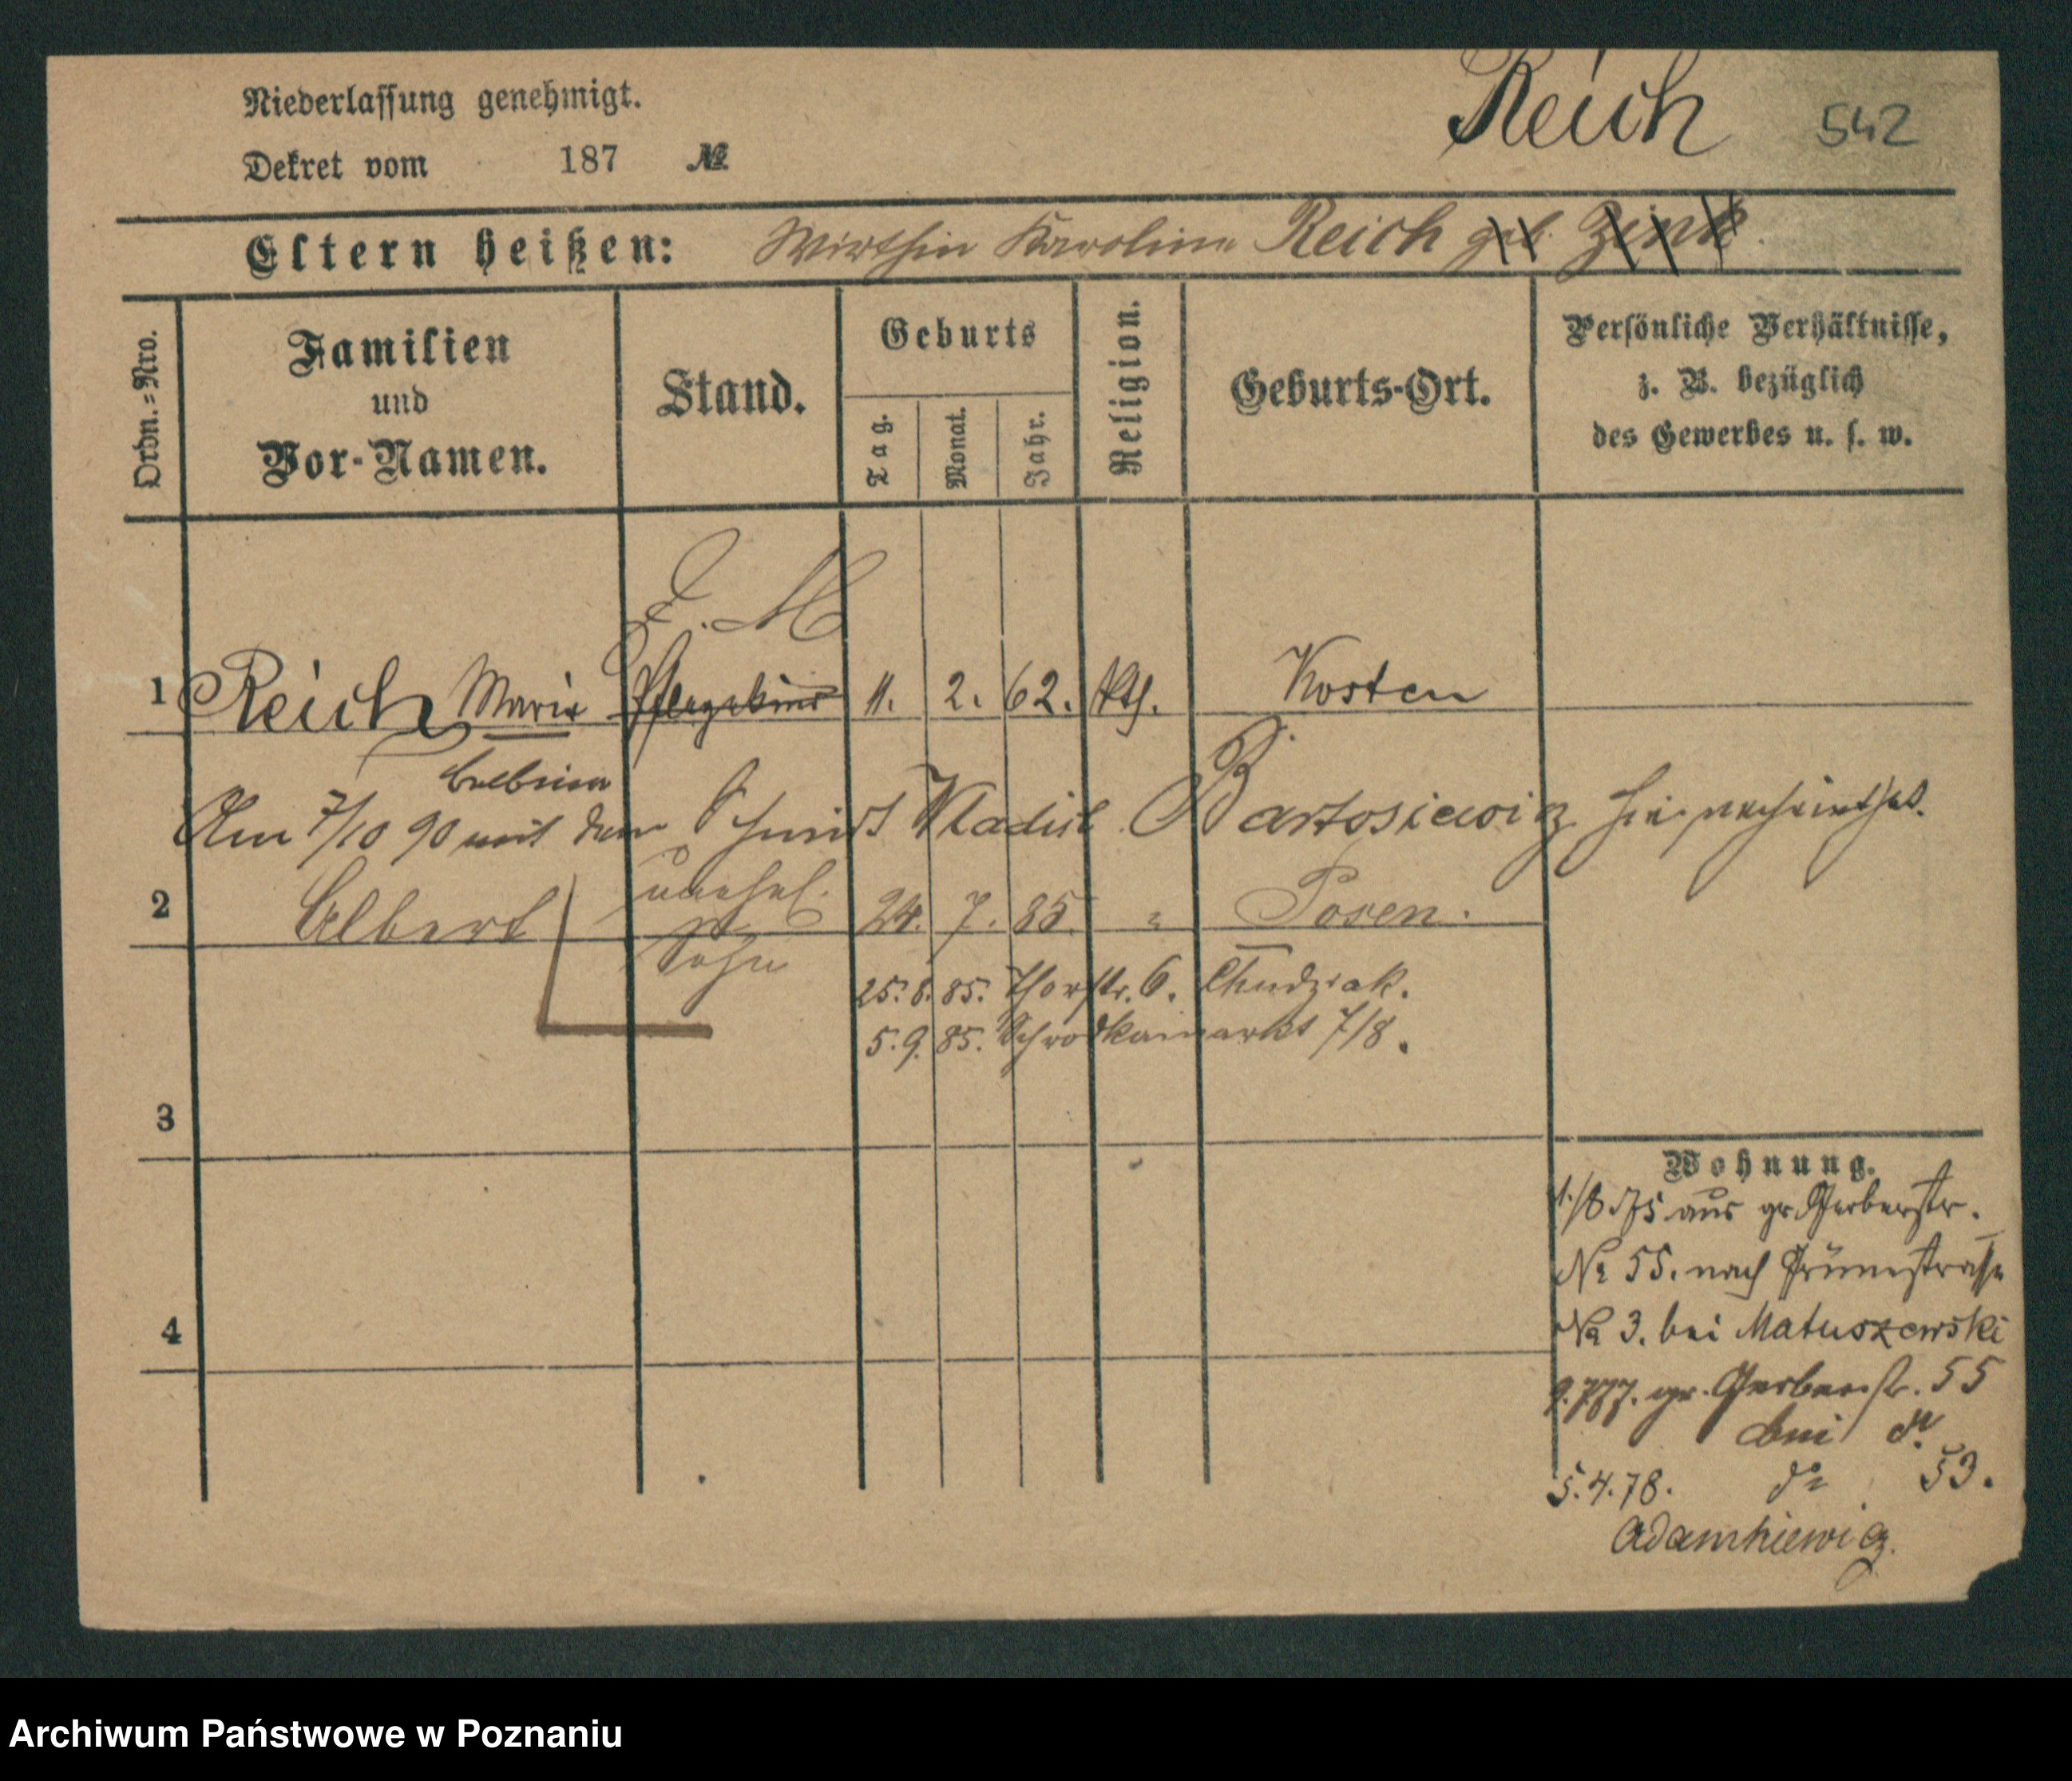 Niederlassung genehmigt.
Reich 542
Dekret vom 187 №
Eltern heißen: Wirthin Karoline Reich geb. Zink
Ordn.-Nro.
Familien und Vor-Namen.
Stand.
Geburts
Tag.
Monat.
Jahr.
Religion.
Geburts-Ort.
Persönliche Verhältnisse,
z. B. bezüglich
des Gewerbes u. s. w.
1 Reich Maria Pflegekind 11. 2. 62. kth. Kosten
Am 7/10 90 mit dem Schmidt Vladisl. Bartosiewicz hier verheirathet.
2 Albert unehel. Sohn 24. 7. 85. " Posen.
25. 8. 85. Thorstr. 6. Chudziak.
5. 9. 85. Schrodkamarkt 7/8.
3
4
Wohnung.
1./8 75 aus gr. Gerberstr.
No 55. nach Grünestrasse
No 3. bei Matuszewski
gr. Gerberstr. 55
bei do
5. 4. 78. do 53.
Adamkiewicz.
Archiwum Państwowe w Poznaniu